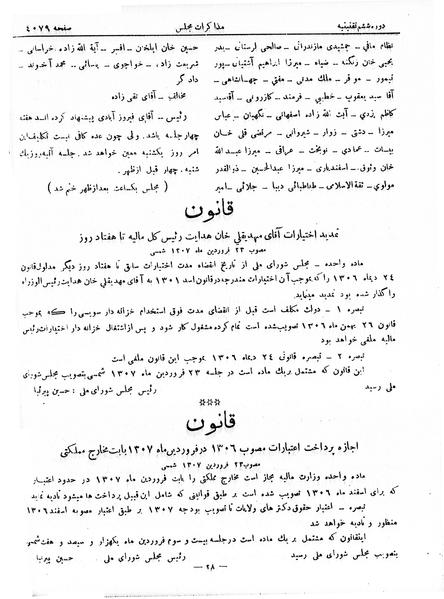 دوره ششم تقنینیه
مذاکرات مجلس
صفحه ۴۰۷۹
نظام مافی - جمشیدی مازندرانی - صالحی لرستان - بدر
یحیی خان زنگنه - ضیاء - میرزا ابراهیم آشتیانی - پور
تیمور - موقر - ملک مدنی - مفتی - جهانشاهی -
آقا سید یعقوب - خطیبی - فرمند - کازرونی - آقاسید
کاظم یزدی - آیت الله زاده اصفهانی - بنی سلیمان -
میرزا - دشتی - زوار - شیروانی - مرتضی قلی خان
بیات - عمادی - نوبخت - عراقی - میرزا عبدالله
خان وثوق - اسفندیاری - میرزا عبدالحسین - ذوالقدر
مولوی - ثقة الاسلامی - طباطبائی دیبا - جلائی - امیر
حسین خان ایلخان - افسر - آیة الله زاده خراسانی -
شریعت زاده - خواجوی - یاسائی - محمد آخوند -
دادگر
مخالف - آقای تقی زاده
رئیس - آقای فیروز آبادی پیشنهاد کرده اند هفته
چهار جلسه باشد. ولی چون عده کافی نیست تکلیف این
امر روز یکشنبه معین خواهد شد. جلسه آتیه روز یک
شنبه، چهار قبل از ظهر.
( مجلس یکساعت بعد از ظهر ختم شد )
قانون
تمدید اختیارات آقای مهدیقلی خان هدایت رئیس کل مالیه تا هفتاد روز
مصوب ۲۳ فروردین ماه ۱۳۰۷ شمسی
ماده واحده - مجلس شورای ملی از تاریخ انقضاء مدت اختیارات سابق تا هفتاد روز دیگر مدلول قانون
۲۴ دیماه ۱۳۰۶ را که بموجب آن اختیارات مندرجه در قانون اسد ۱۳۰۱ به آقای مهدیقلی خان هدایت رئیس الوزراء
واگذار شده بود تمدید مینماید
تبصره ۱ - دولت مکلف است قبل از انقضای مدت فوق استخدام خزانه دار سویسی را که بموجب
قانون ۲۶ بهمن ماه ۱۳۰۶ تصویب شده است تمام کرده مشغول کار شود و پس از اشتغال خزانه دار اختیارات رئیس
مالیه ملغی خواهد بود
تبصره ۲ - تبصره قانونی ۲۴ دیماه ۱۳۰۶ بموجب این قانون ملغی است
این قانون که مشتمل بر یک ماده است در جلسه ۲۳ فروردین ماه ۱۳۰۷ شمسی بتصویب مجلس شورای
ملی رسید
رئیس مجلس شورای ملی : حسین پیرنیا
***
قانون
اجازه پرداخت اعتبارات مصوب ۱۳۰۶ در فروردین ماه ۱۳۰۷ بابت مخارج مملکتی
مصوب ۲۳ فروردین ۱۳۰۷ شمسی
ماده واحده وزارت مالیه مجاز است مخارج مملکتی را بابت فروردین ماه ۱۳۰۷ در حدود اعتبار
که برای اسفند ماه ۱۳۰۶ تصویب شده است بر طبق قوانینی که شامل این قبیل پرداخت ها میشود تادیه نماید
تبصره - اعتبار حقوق دکتر های ولایات تا تصویب بودجه ۱۳۰۷ بر طبق اعتبار مصوبه اسفند ۱۳۰۶
منظور و تادیه خواهد شد
اینقانون که مشتمل بر یک ماده است در جلسه بیست و سوم فروردین ماه یکهزار و سیصد و هفت شمسی
بتصویب مجلس شورای ملی رسید
رئیس مجلس شورای ملی
حسین پیرنیا
- ۲۸ -